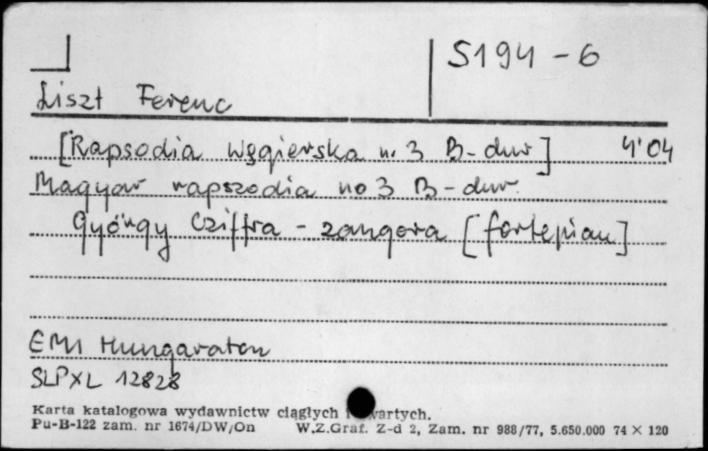 S194-6
Liszt Ferenc
[Rapsodia węgierska nr 3 B-dur] 4'04
Magyar rapszodia no 3 B-dur
György Cziffra - zongora [fortepian]
EMI Hungaraton
SLPXL 12828
Karta katalogowa wydawnictw ciągłych i zwartych.
Pu-B-122 zam. nr 1674/DW/On W.Z.Graf. Z-d 2, Zam. nr 988/77, 5.650.000 74 × 120